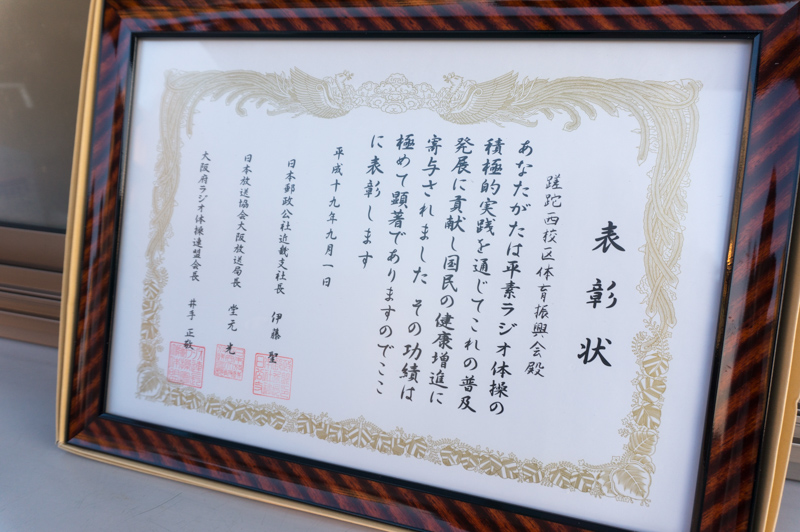 表彰状
蹉跎西校区体育振興会殿
あなたがたは平素ラジオ体操の
積極的実践を通じてこれの普及
発展に貢献し国民の健康増進に
寄与されました その功績は
極めて顕著でありますのでここ
に表彰します
平成十九年九月一日
日本郵政公社近畿支社長 伊藤 聖
日本放送協会大阪放送局長 堂元 光
大阪府ラジオ体操連盟会長 井手 正敬